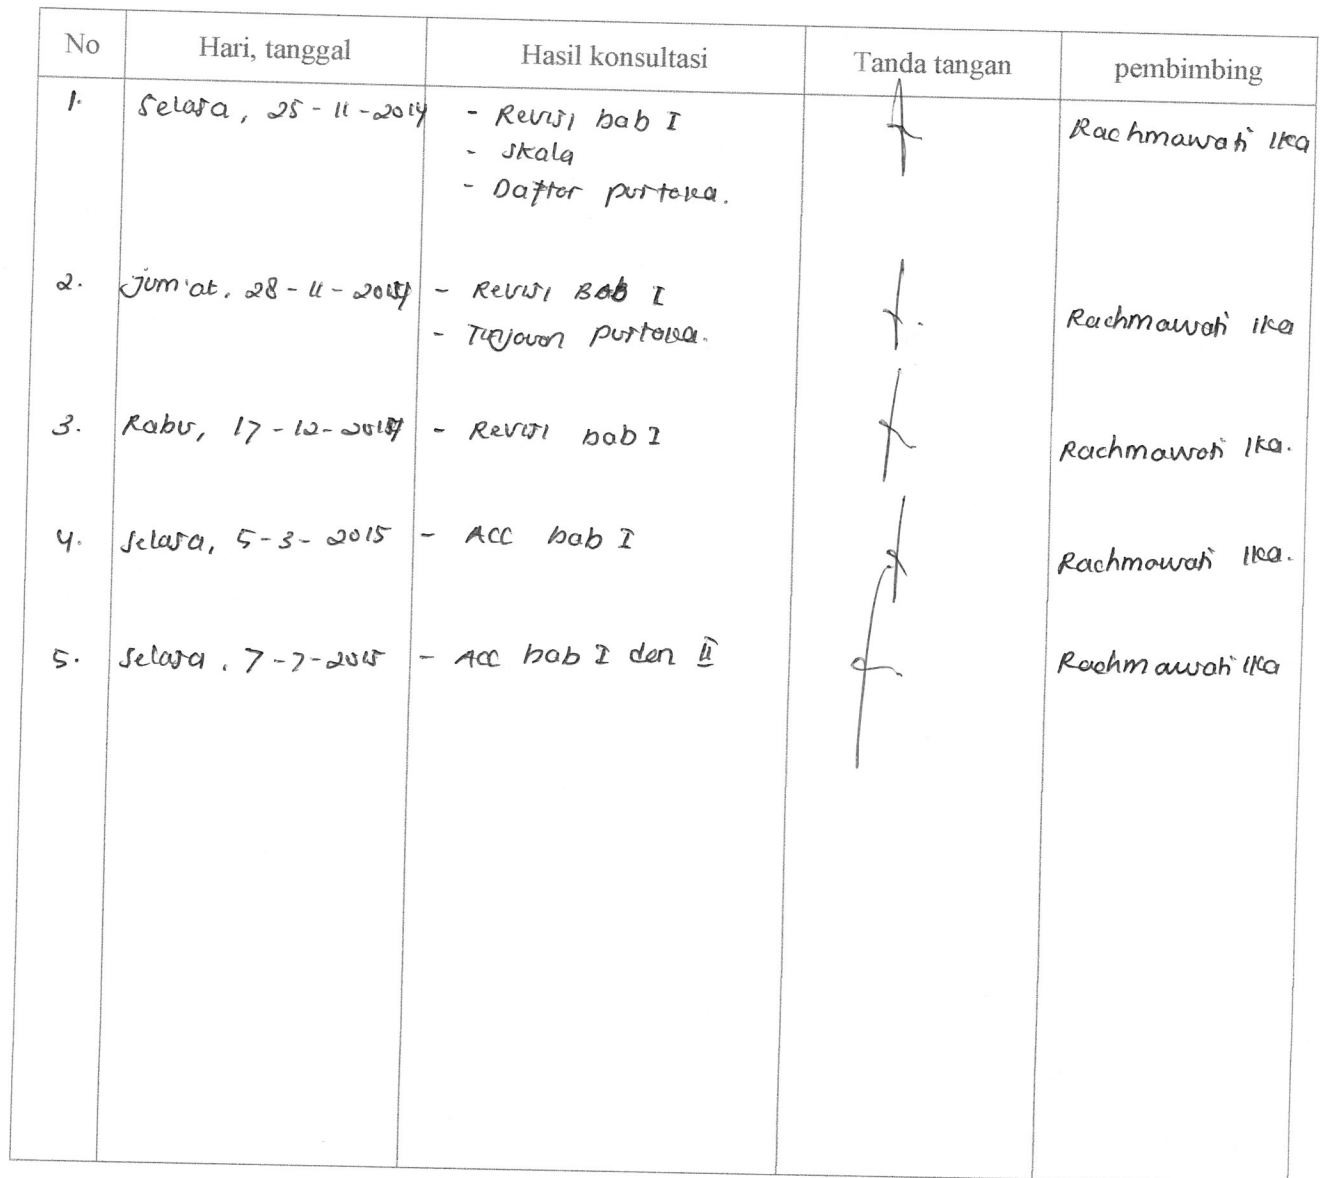 No Hari, tanggal Hasil konsultasi Tanda tangan pembimbing
1. Selasa, 25-11-2014 - Revisi bab I Rachmawati Ika
- Skala
- Daftar pustaka.
2. Jum'at, 28-11-2014 - Revisi Bab I Rachmawati ika
- Tinjauan pustaka.
3. Rabu, 17-12-2014 - Revisi bab I Rachmawati Ika.
4. Selasa, 5-3-2015 - ACC bab I Rachmawati Ika.
5. Selasa, 7-7-2015 - ACC bab I dan II Rachmawati Ika